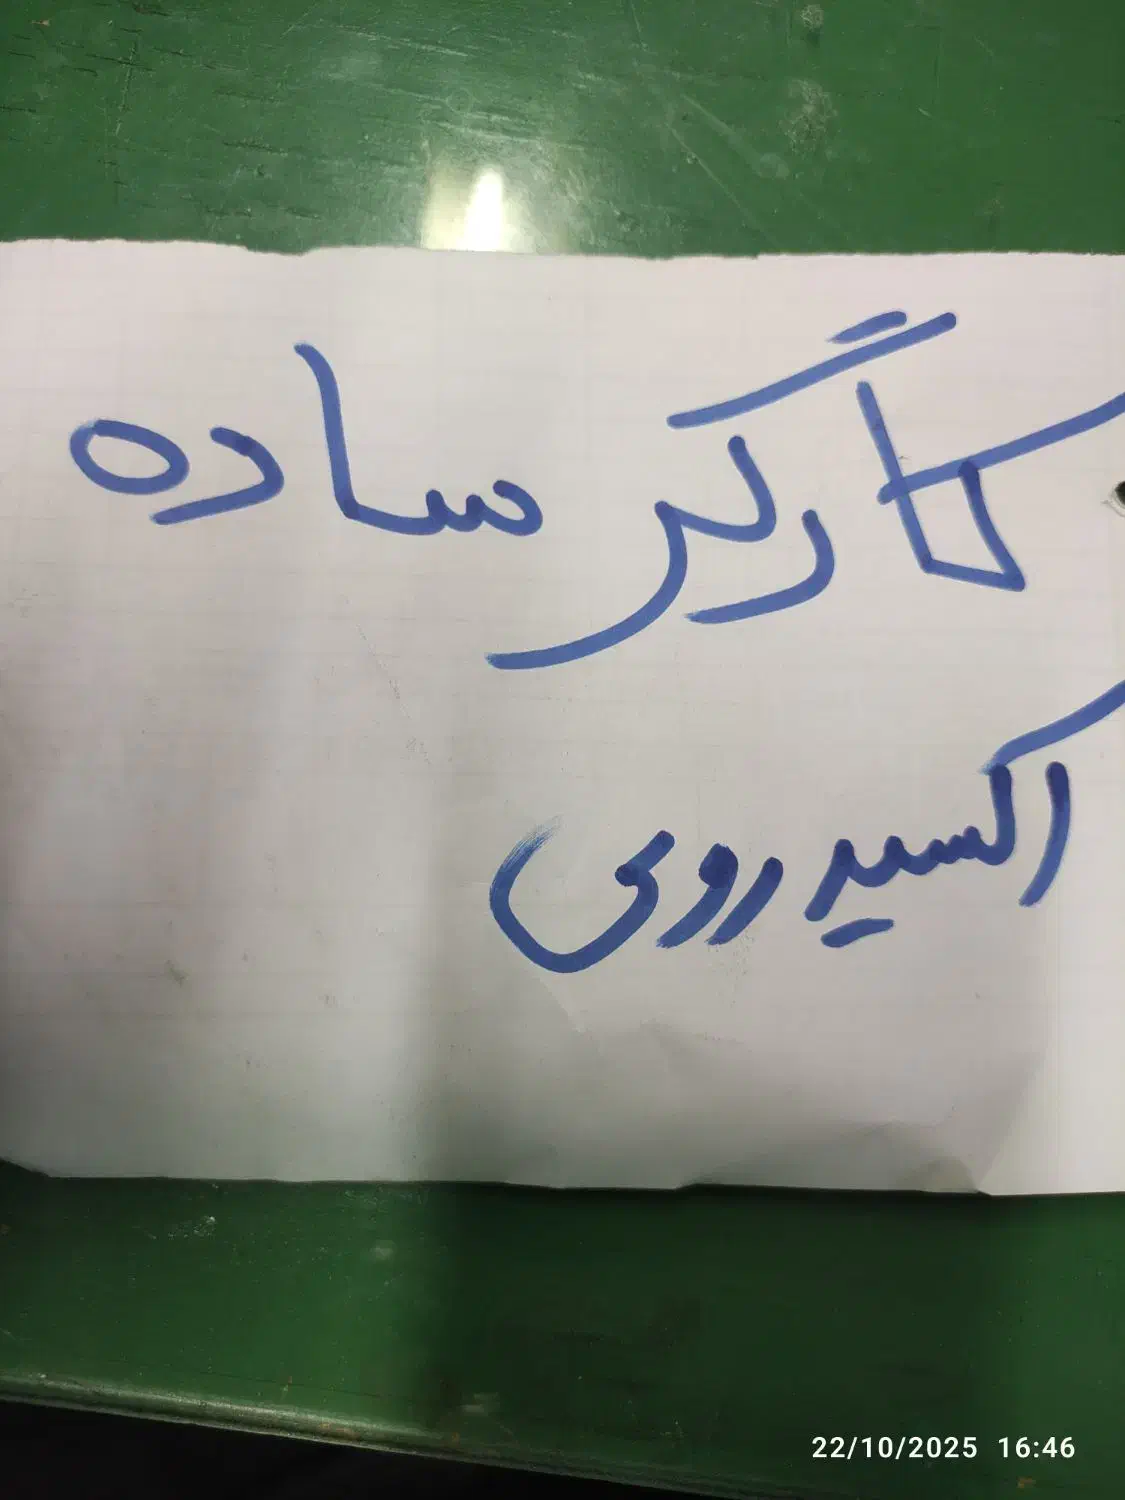 کارگر ساده
اکسید روی
22/10/2025 16:46